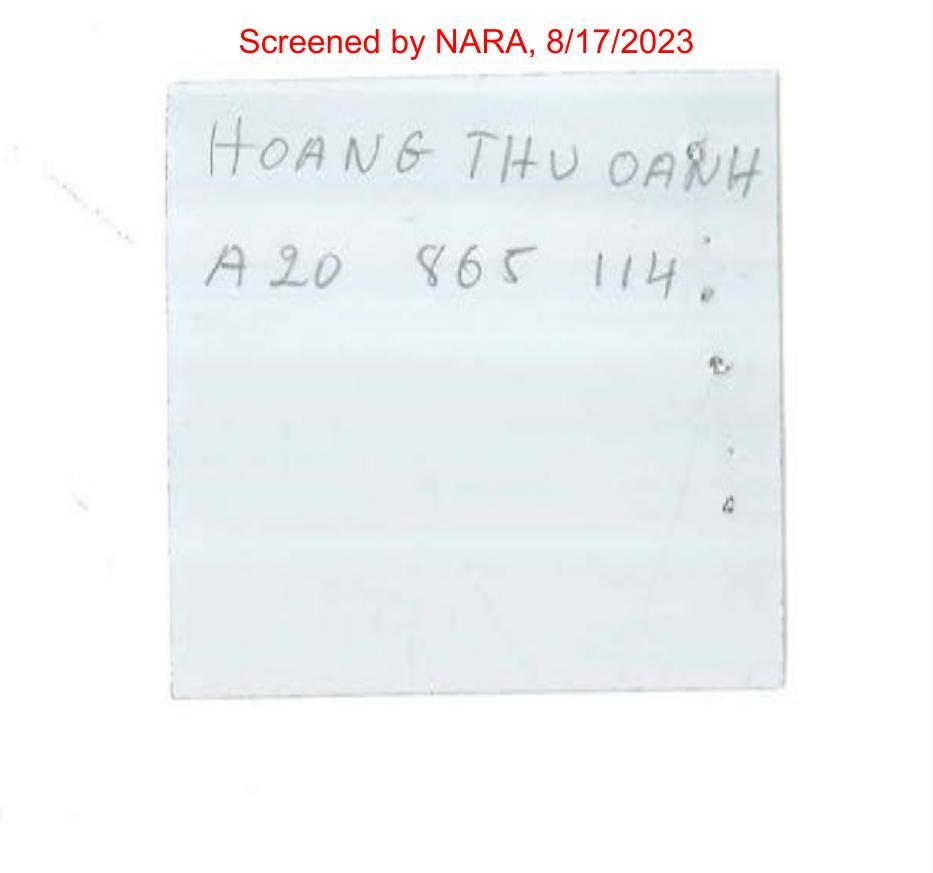 Screened by NARA, 8/17/2023
HOANG THU OANH
A20 865 114